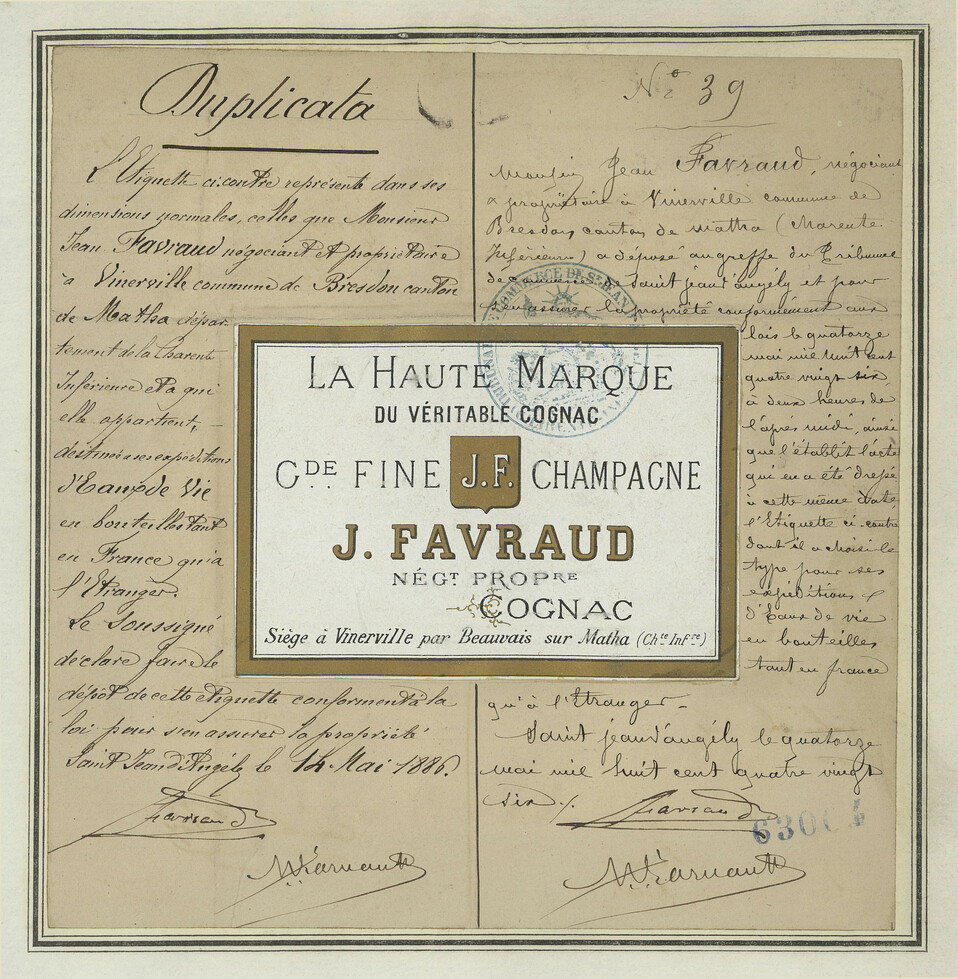 Duplicata
L'Etiquette ci-contre représente dans ses
dimensions normales, celles que Monsieur
Jean Favraud négociant et propriétaire
à Vinerville commune de Bresdon canton
de Matha dépar-
tement de la Charente
Inférieure et a qui
elle appartient, –
destinée a ses expéditions
d'Eaux de Vie
en bouteilles tant
en France qu'a
l'Etranger.
Le Soussigné
déclare faire le
dépôt de cette étiquette conformément à la
loi pour s'en assurer la propriété
Saint Jean d'Angély le 14 Mai 1886.
Favraud
Nº 39
Monsieur Jean Favraud, négociant
& propriétaire à Vinerville commune de
Bresdon, canton de Matha (Charente
Inférieure) a déposé au greffe du Tribunal
de commerce de Saint jean d'angély et pour
s'en assurer la propriété conformément aux
lois le quatorze
mai mil huit cent
quatre vingt six,
à deux heures de
l'après midi, ainsi
que l'établit l'acte
qui en a été dressé
à cette même date,
l'Etiquette ci-contre
dont il a choisi le
type pour ses
expéditions
d'Eaux de vie
en bouteilles
tant en france
qu'à l'Etranger –
Saint jean d'angély le quatorze
mai mil huit cent quatre vingt
six ./.
Favraud
TRIBUNAL DE COMMERCE DE ST JEAN
LA HAUTE MARQUE
DU VÉRITABLE COGNAC
GDE FINE J.F. CHAMPAGNE
J. FAVRAUD
NÉGT PROPRE
COGNAC
Siège à Vinerville par Beauvais sur Matha (Chte Infre)